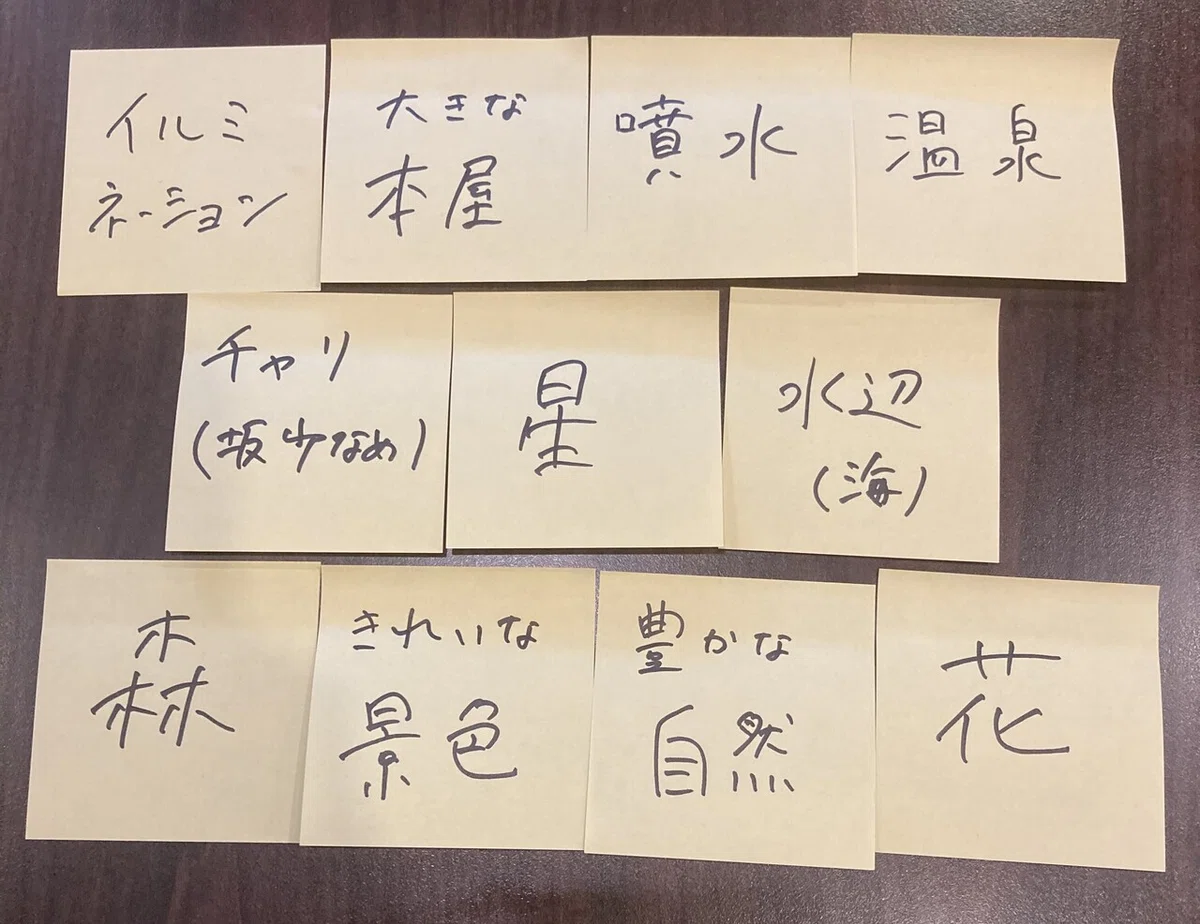 イルミ
ネーション
大きな
本屋
噴水
温泉
チャリ
(坂少なめ)
星
水辺
(海)
森
きれいな
景色
豊かな
自然
花